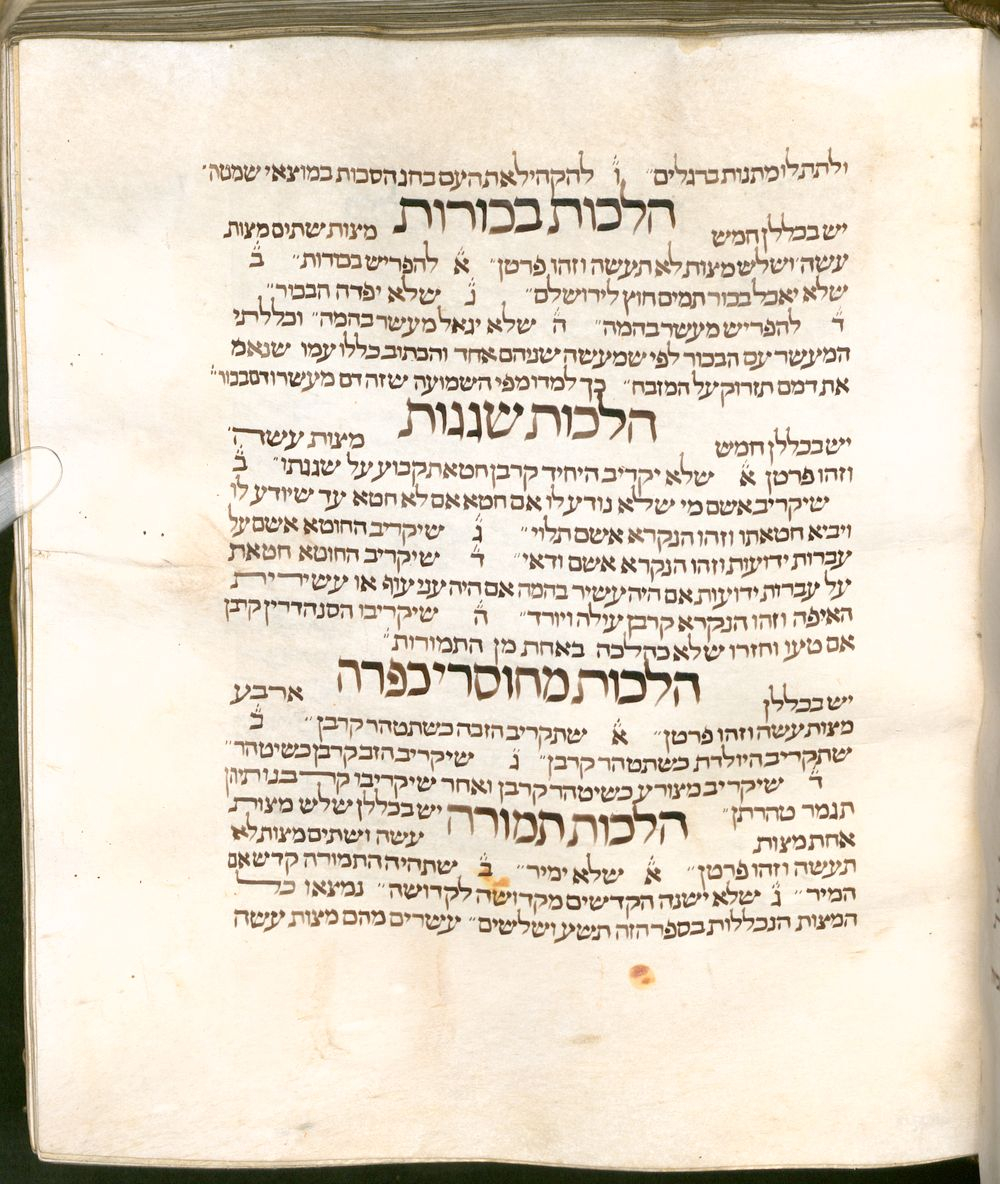 ולתת לו מתנות ברגלים״ ו̈ להקהיל את העם בחג הסכות במוצאי שמטה״
הלכות בכורות
יש בכללן חמש מצות שתים מצות
עשה ושלש מצות לא תעשה וזהו פרטן״ א̈ להפריש בכורות״ ב̈
שלא יאכל בכור תמים חוץ לירושלם״ ג̈ שלא יפדה הבכור״
ד̈ להפריש מעשר בהמה״ ה̈ שלא יגאל מעשר בהמה״ וכללתי
המעשר עם הבכור לפי שמעשה שניהם אחד והכתוב כללו עמו שנאמ
את דמם תזרוק על המזבח״ כך למדו מפי השמועה שזה דם מעשר ודם בכור״
הלכות שגגות
יש בכללן חמש מצות עשה
וזהו פרטן א̈ שלא יקריב היחיד קרבן חטאת קבוע על שגגתו״ ב̈
שיקריב אשם מי שלא נודע לו אם חטא אם לא חטא עד שיודע לו
ויביא חטאתו וזהו הנקרא אשם תלוי״ ג̈ שיקריב החוטא אשם על
עברות ידועות וזהו הנקרא אשם ודאי״ ד̈ שיקריב החוטא חטאת
על עברות ידועות אם היה עשיר בהמה אם היה עני עוף או עשירית
האיפה וזהו הנקרא קרבן עולה ויורד״ ה̈ שיקריבו הסנהדרין קרבן
אם טעו וחזרו שלא כהלכה באחת מן החמורות״
הלכות מחוסרי כפרה
יש בכללן ארבע
מצות עשה וזהו פרטן״ א̈ שתקריב הזבה כשתטהר קרבן״ ב̈
שתקריב היולדת כשתטהר קרבן״ ג̈ שיקריב הזב קרבן כשיטהר״
ד̈ שיקריב מצורע כשיטהר קרבן ואחר שיקריבו קרבנותיהן
תגמר טהרתן״ הלכות תמורה יש בכללן שלש מצות
אחת מצות עשה ושתים מצות לא
תעשה וזהו פרטן״ א̈ שלא ימיר״ ב̈ שתהיה התמורה קדש אם
המיר״ ג̈ שלא ישנה הקדשים מקדושה לקדושה״ נמצאו כל
המצות הנכללות בספר הזה תשע ושלשים״ עשרים מהם מצות עשה